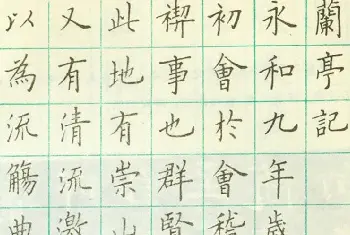 蘭亭記
永和九年歲
初會於會稽
禊事也群賢
此地有崇山
又有清流激
以為流觴曲